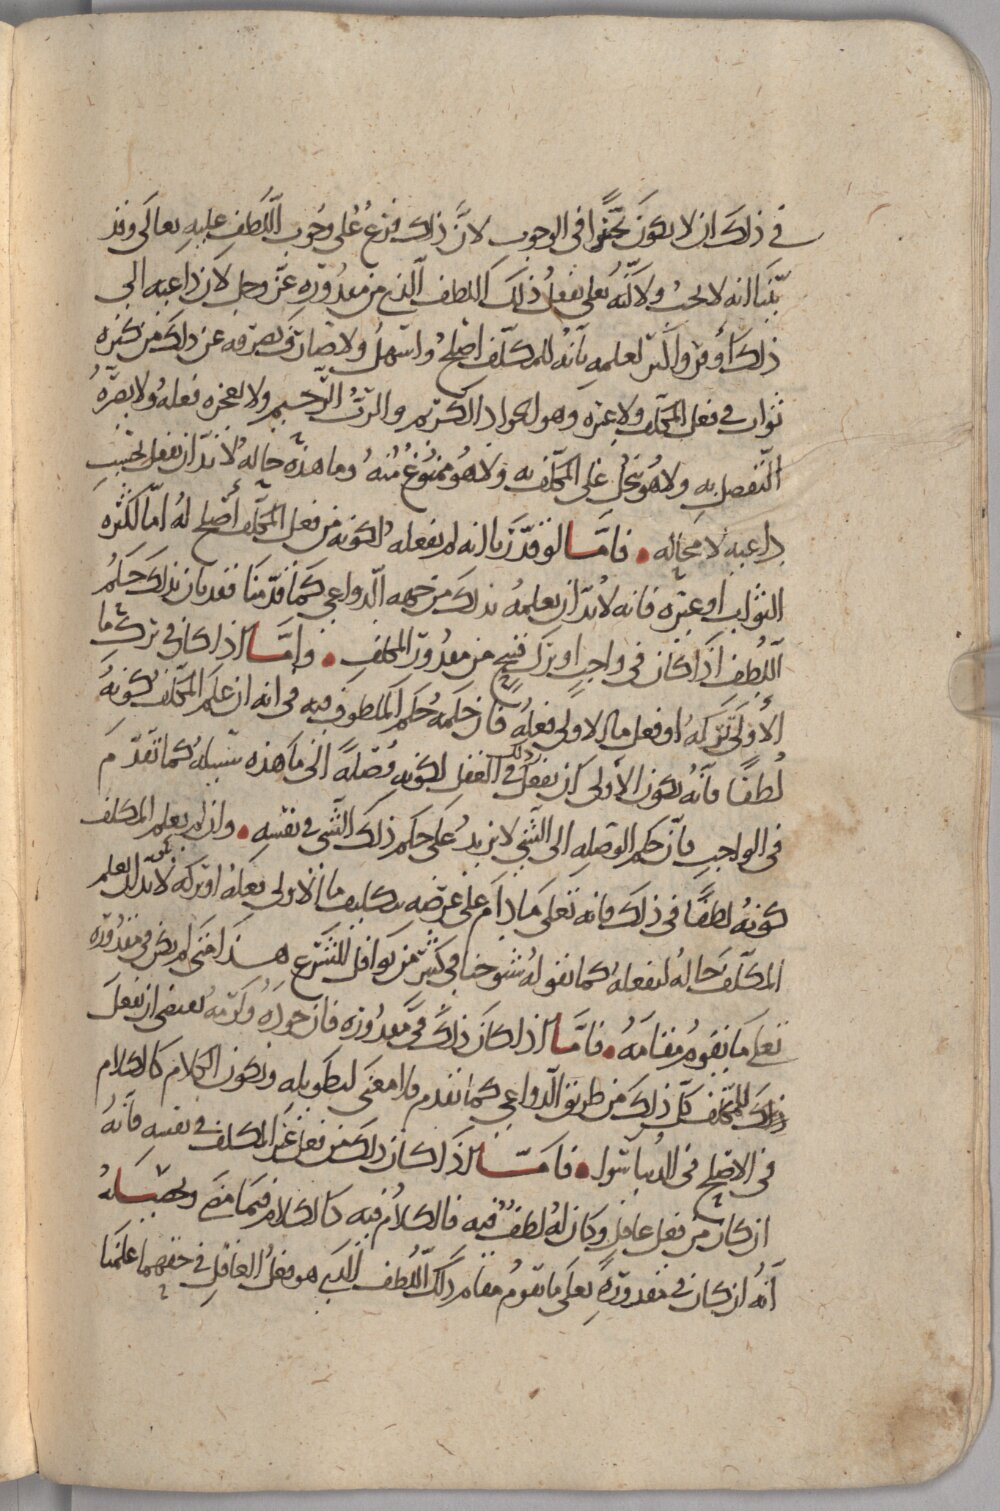 في ذلك ان لا يكون في الوجوب لان ذلك فرع على وجوب اللطف عليه تعالى وقد
بينا انه لا يجب ولانه تعلى يفعل ذلك اللطف الذي من مقدوره عز وجل لان داعيه الى
ذلك اوفر والتر لعلمه بانه للمكلف اصلح واسهل ولا صارف يصرفه عن ذلك من كثره
ثواب في فعل المكلف ولا غيره وهو الجواد الكريم والرب الرحيم ولا يعجزه فعله ولا يضره
التفضل به ولا هو يبخل على المكلف به ولا هو ممنوع منه وما هذه حاله لا بد ان يفعل بحسب
داعيه لا محاله • فامـا لو قدرنا انه لم يفعله لكونه من فعل المكلف اصلح له اما لكثره
الثواب او غيره فانه لا بد ان يعلمه بذلك من جهه الدواعي كما قدمنا فقد بان بذلك حكم
اللطف اذا كان في واجب او ترك قبيح من مقدور المكلف • وامـا اذا كان في ترك ما
الاولى تركه او فعل ما الاولى فعله فان حكمه حكم الملطوف فيه في انه ان علم المكلف كونه
لطفا فانه يكون الاولى ان يفعل ذلك في العقل لكونه وصله الى ما هذه سبيله كما تقدم
في الواجب فان حكم الوصله الى الشي لا يزيد على حكم ذلك الشي في نفسه • وان لم يعلم المكلف
كونه لطفا في ذلك فانه تعلى ما دام على غرضه بتكليف ما الاولى فعله او تركه فلا بد ان يعلم
المكلف حاله ليفعله كما نقوله شيوخنا في كثير من نوافل الشرع هـذا متى لم يكن في مقدوره
تعلى ما يقوم مقامه • فامـا اذا كان ذلك في مقدوره فان جوده وكرمه يقتضي ان يفعل
ذلك للمكلف كل ذلك من طريق الدواعي كما تقدم فلا معنى لتطويله ويكون الكلام كالكلام
في الاصلح في الدنيا سوا • فامـا اذا كان ذلك من فعل غير المكلف في نفسه فانه
ان كان من فعل عاقل وكان له لطف فيه فالكلام فيه كالكلام فيما مضى
انه ان كان في مقدوره تعلى ما يقوم مقام ذلك اللطف الذي هو فعل العاقل في حقهما علمنا